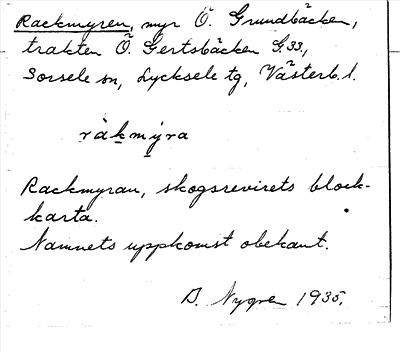 Rackmyren, myr Ö. Grundbäcken,
trakten Ö. Gertsbäcken G.33,
Sorsele sn, Lycksele tg, Västerb. l.
ràkmýra
Rackmyran, skogsrevirets block-
karta.
Namnets uppkomst obekant.
D. Nygren 1935.